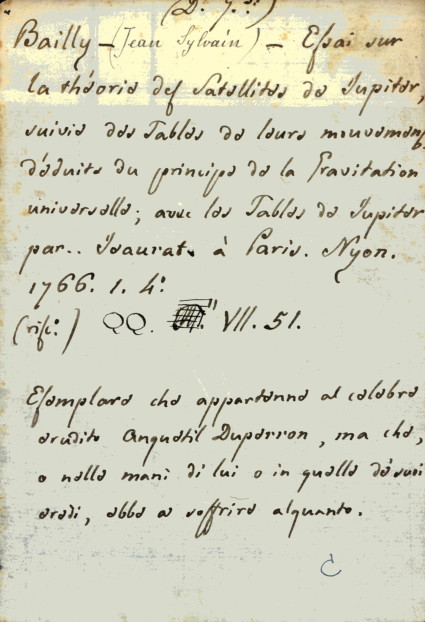 (D. 7.°:)
Bailly - (Jean Sylvain) - Essai sur
la théorie des Satellites de Jupiter,
suivie des Tables de leurs mouvemens
déduits du principe de la Gravitation
universelle; avec les Tables de Jupiter
par.. Jeaurat. à Paris. Nyon.
1766. 1. 4°.
(rifc:°) QQ. VII. 51.
Esemplare che appartenne al celebre
erudito Anquetil Duperron, ma che,
o nelle mani di lui o in quelle de' suoi
eredi, ebbe a soffrire alquanto.
C